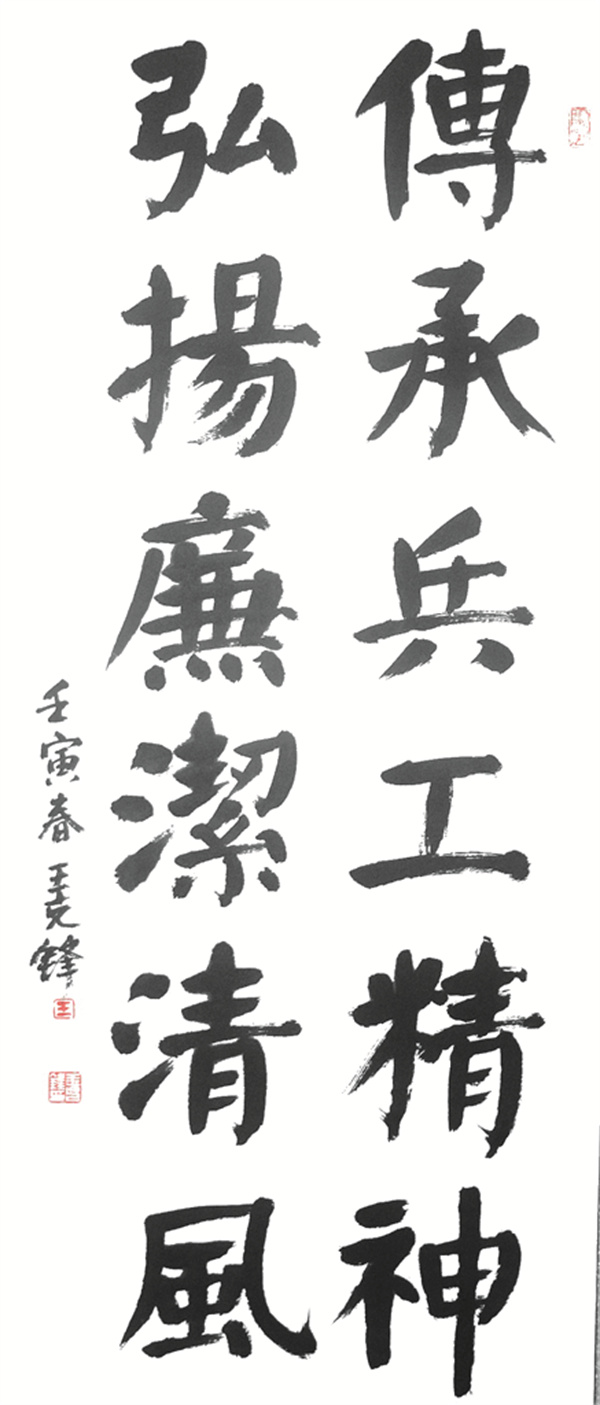 傳承兵工精神
弘揚廉潔清風
壬寅春王堯鋒